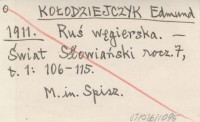 KOŁODZIEJCZYK Edmund
1911. Ruś węgierska. —
Świat Słowiański rocz. 7,
t. 1: 106-115.
M. in. Spisz.